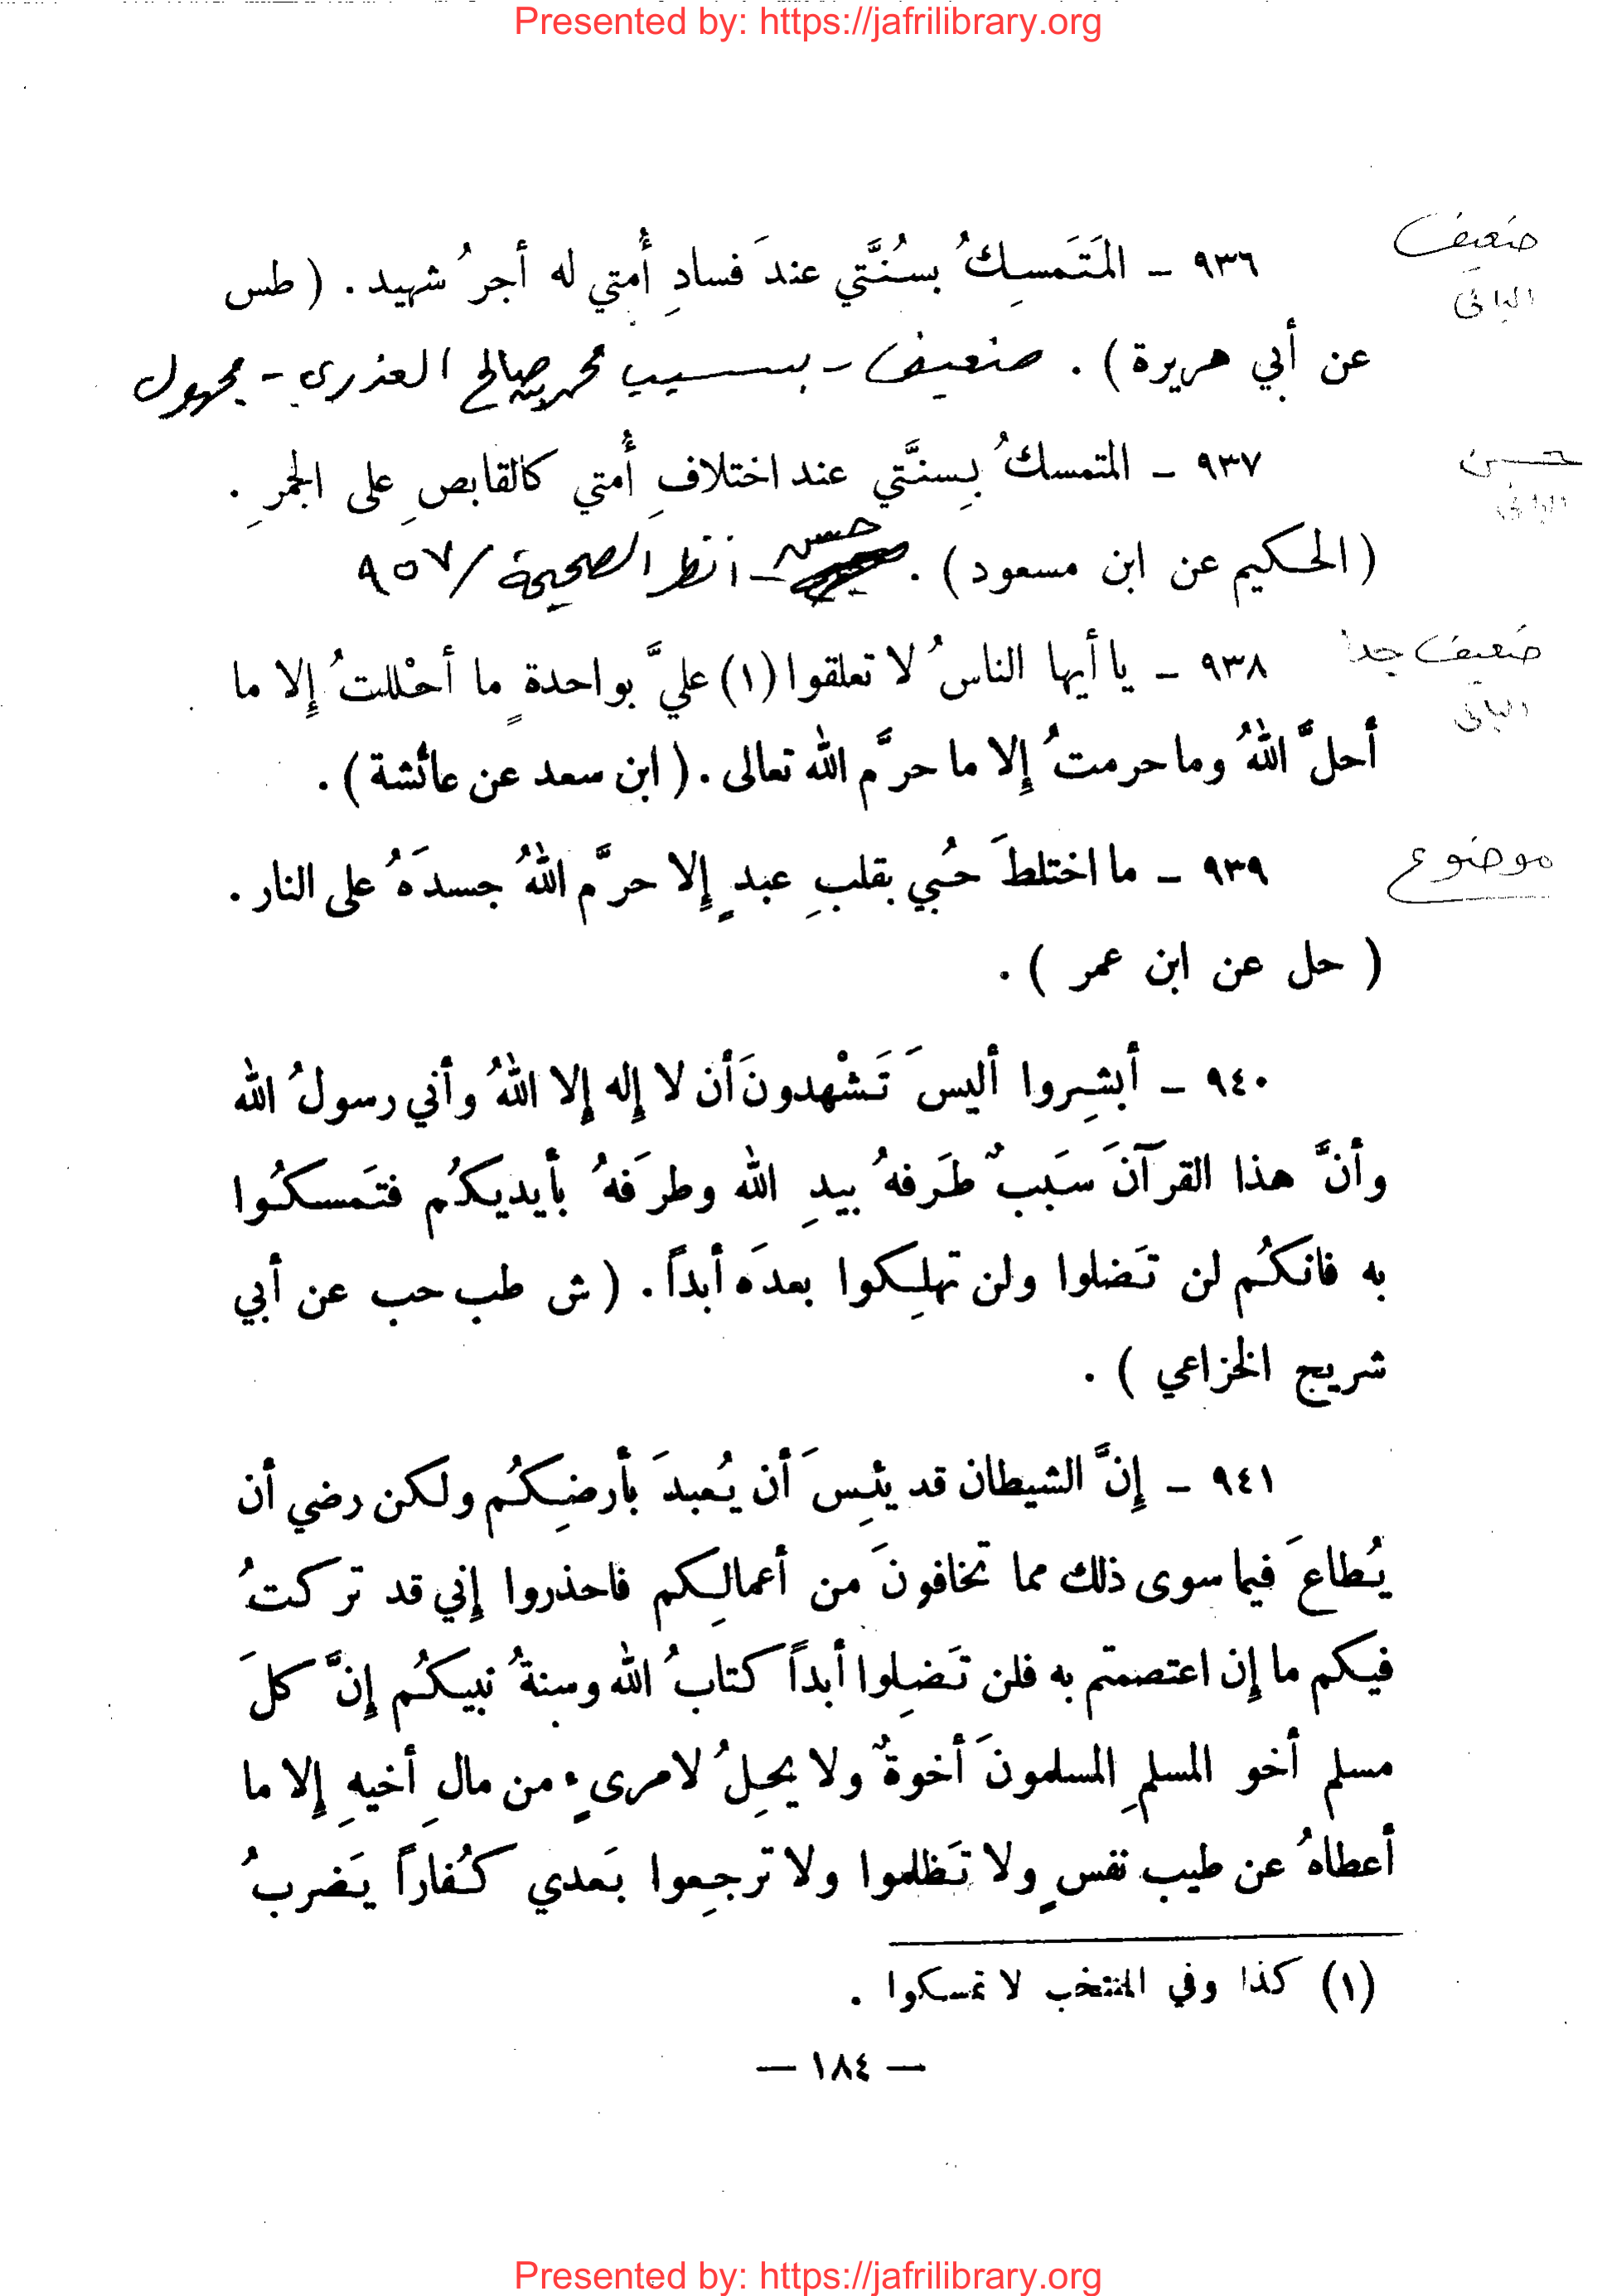 Presented by: https://jafrilibrary.org
ضعيف
٩٣٦ – المَتَمسِكُ بسُنَّتي عندَ فسادِ أُمتي له أجرُ شهيد . ( طس
البانى
عن أبي هريرة ) . ضعيف - بسبب محمد بن صالح العذرى - مجهول
حسن
٩٣٧ – المتمسكُ بِسنَّتي عند اختلافِ أُمتي كالقابضِ على الجمرِ .
البانى
( الحكيم عن ابن مسعود ) . حسن - انظر الصحيحة / ٩٥٧
ضعيف جدا
٩٣٨ – يا أيها الناسُ لا تعلقوا (١) عليَّ بواحدةٍ ما أحْللتُ إلا ما
البانى
أحلَّ اللهُ وما حرمتُ إلا ما حرَّم الله تعالى . ( ابن سعد عن عائشة ) .
موضوع
٩٣٩ – ما اختلطَ حُبي بقلبِ عبدٍ إلا حرَّم اللهُ جسدَهُ على النار .
( حل عن ابن عمر ) .
٩٤٠ – أبشِروا أليسَ تَشْهدونَ أن لا إله إلا اللهُ وأني رسولُ الله
وأنَّ هذا القرآنَ سَببٌ طَرفهُ بيدِ الله وطرَفهُ بأيديكُم فتَمسكُوا
به فانكُم لن تَضلوا ولن تهلِكوا بعدَه أبداً . ( ش طب حب عن أبي
شريج الخزاعي ) .
٩٤١ – إنَّ الشيطان قد يئِسَ أن يُعبدَ بأرضِكُم ولكن رضي أن
يُطاعَ فيما سوى ذلك مما تخافونَ من أعمالِكم فاحذروا إني قد تركتُ
فيكم ما إن اعتصمتم به فلن تَضِلوا أبداً كتابُ الله وسنةُ نبيكُم إنَّ كلَ
مسلم أخو المسلمِ المسلمونَ أخوةٌ ولا يحِلُ لامرىءٍ من مالِ أخيهِ إلا ما
أعطاهُ عن طيب نفسٍ ولا تَظلموا ولا ترجِعوا بَعدي كُفاراً يَضربُ
(١) كذا وفي المنتخب لا تمسكوا .
— ١٨٤ —
Presented by: https://jafrilibrary.org